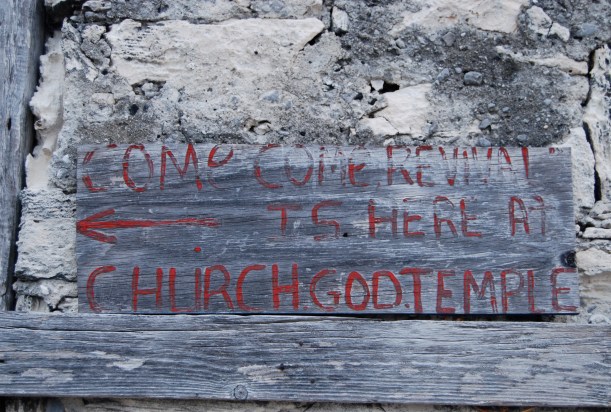 COME COME REVIVAL
IS HERE AT
CHURCH.GOD.TEMPLE